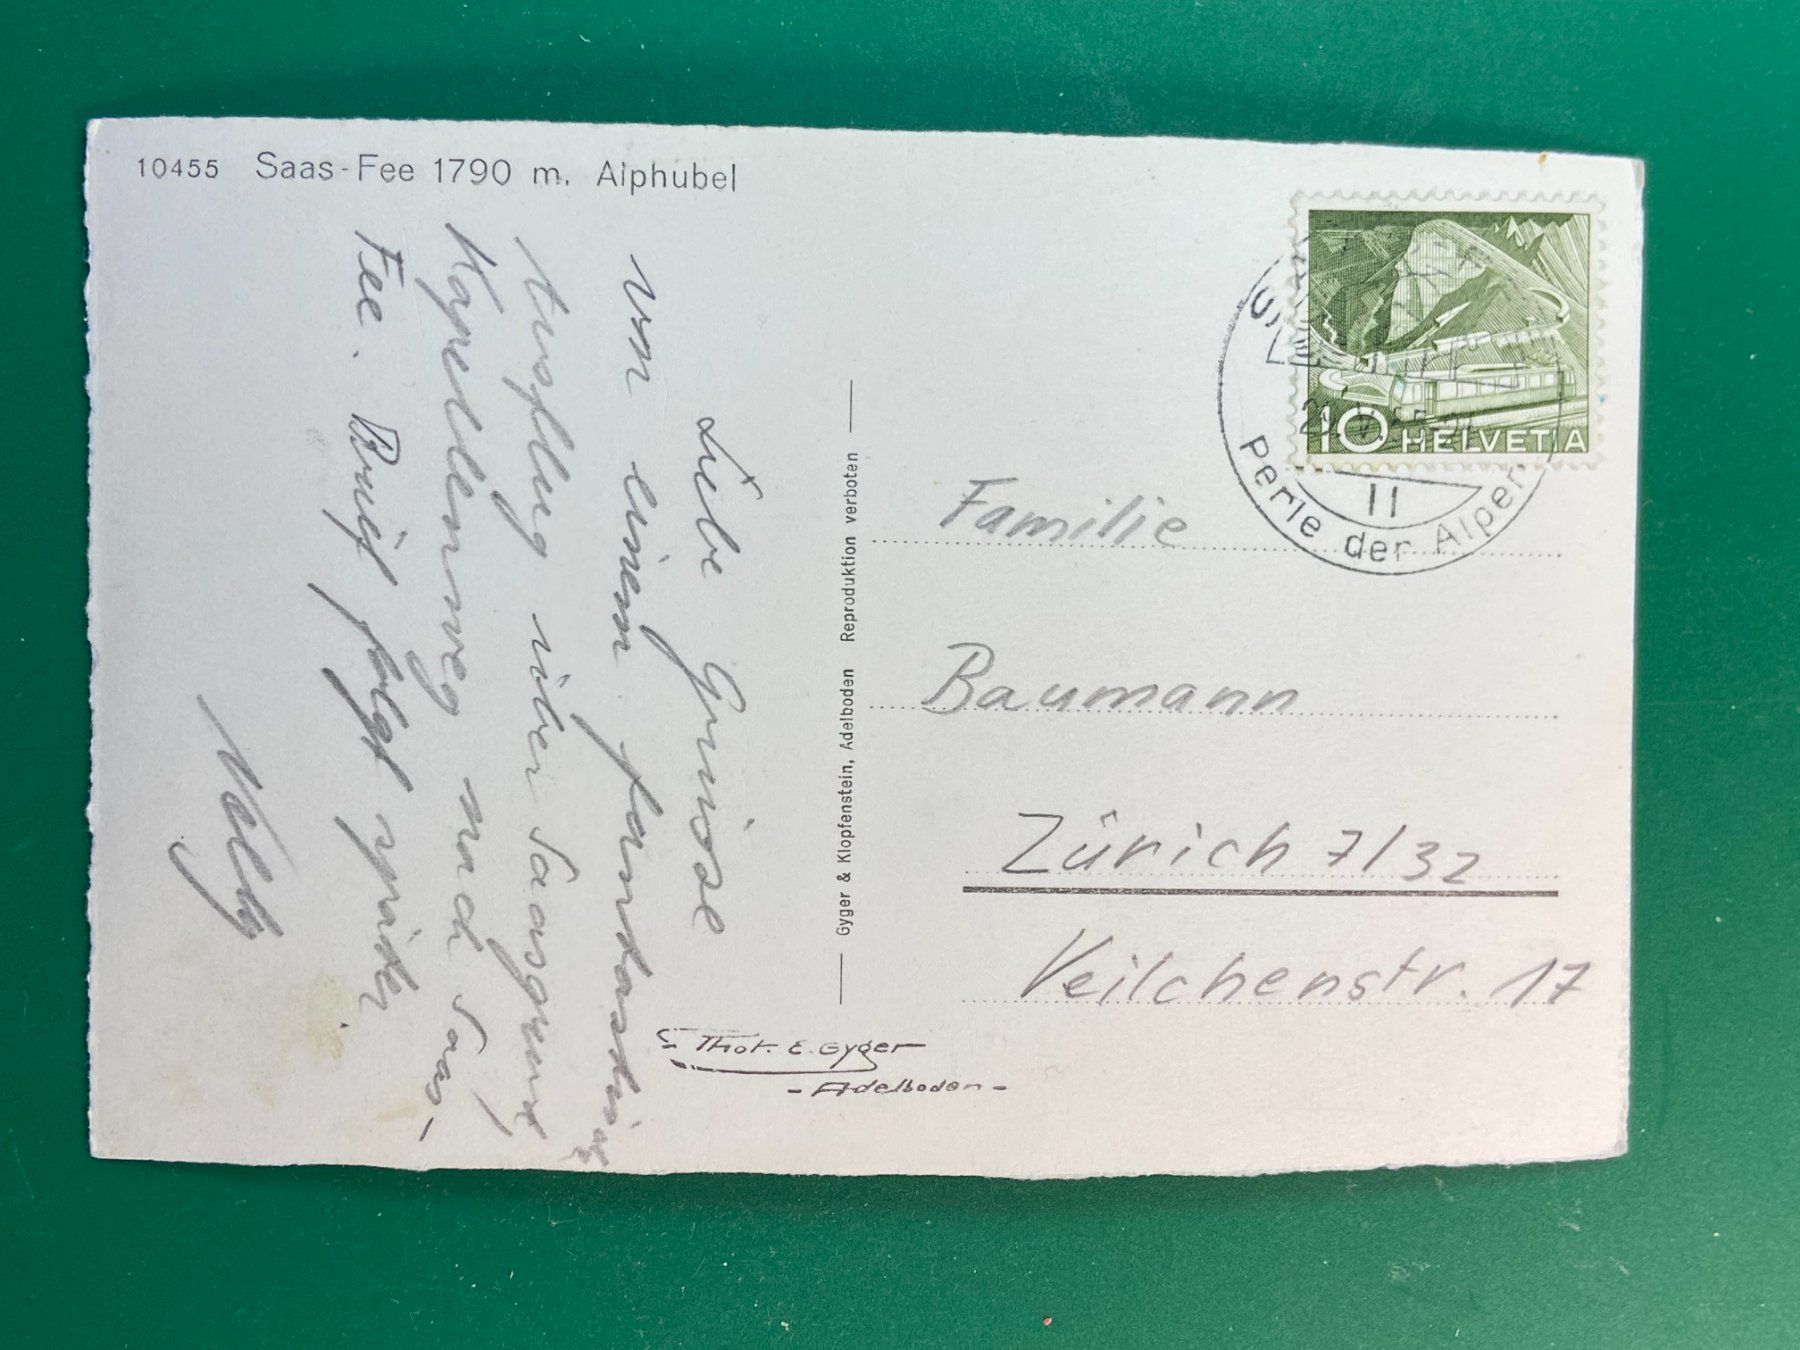 10455 Saas-Fee 1790 m. Alphubel
Liebe Grüsse
von einem fantastischen
Ausflug über Saasgrund,
Kapellenweg nach Saas-
Fee. Brief folgt später.
Gyger & Klopfenstein, Adelboden Reproduktion verboten
Phot. E. Gyger
- Adelboden -
10 HELVETIA
II
Perle der Alpen
Familie
Baumann
Zürich 7/32
Veilchenstr. 17